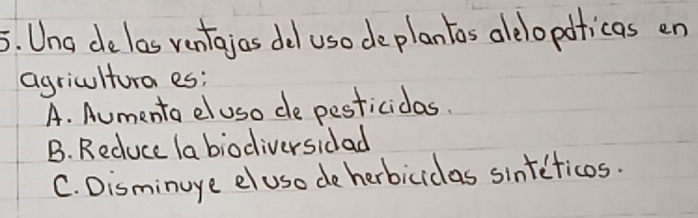 5. Una de las ventajas del uso de plantas alelopáticas en
agricultura es:
A. Aumenta el uso de pesticidas.
B. Reduce la biodiversidad
C. Disminuye el uso de herbicidas sintéticos.